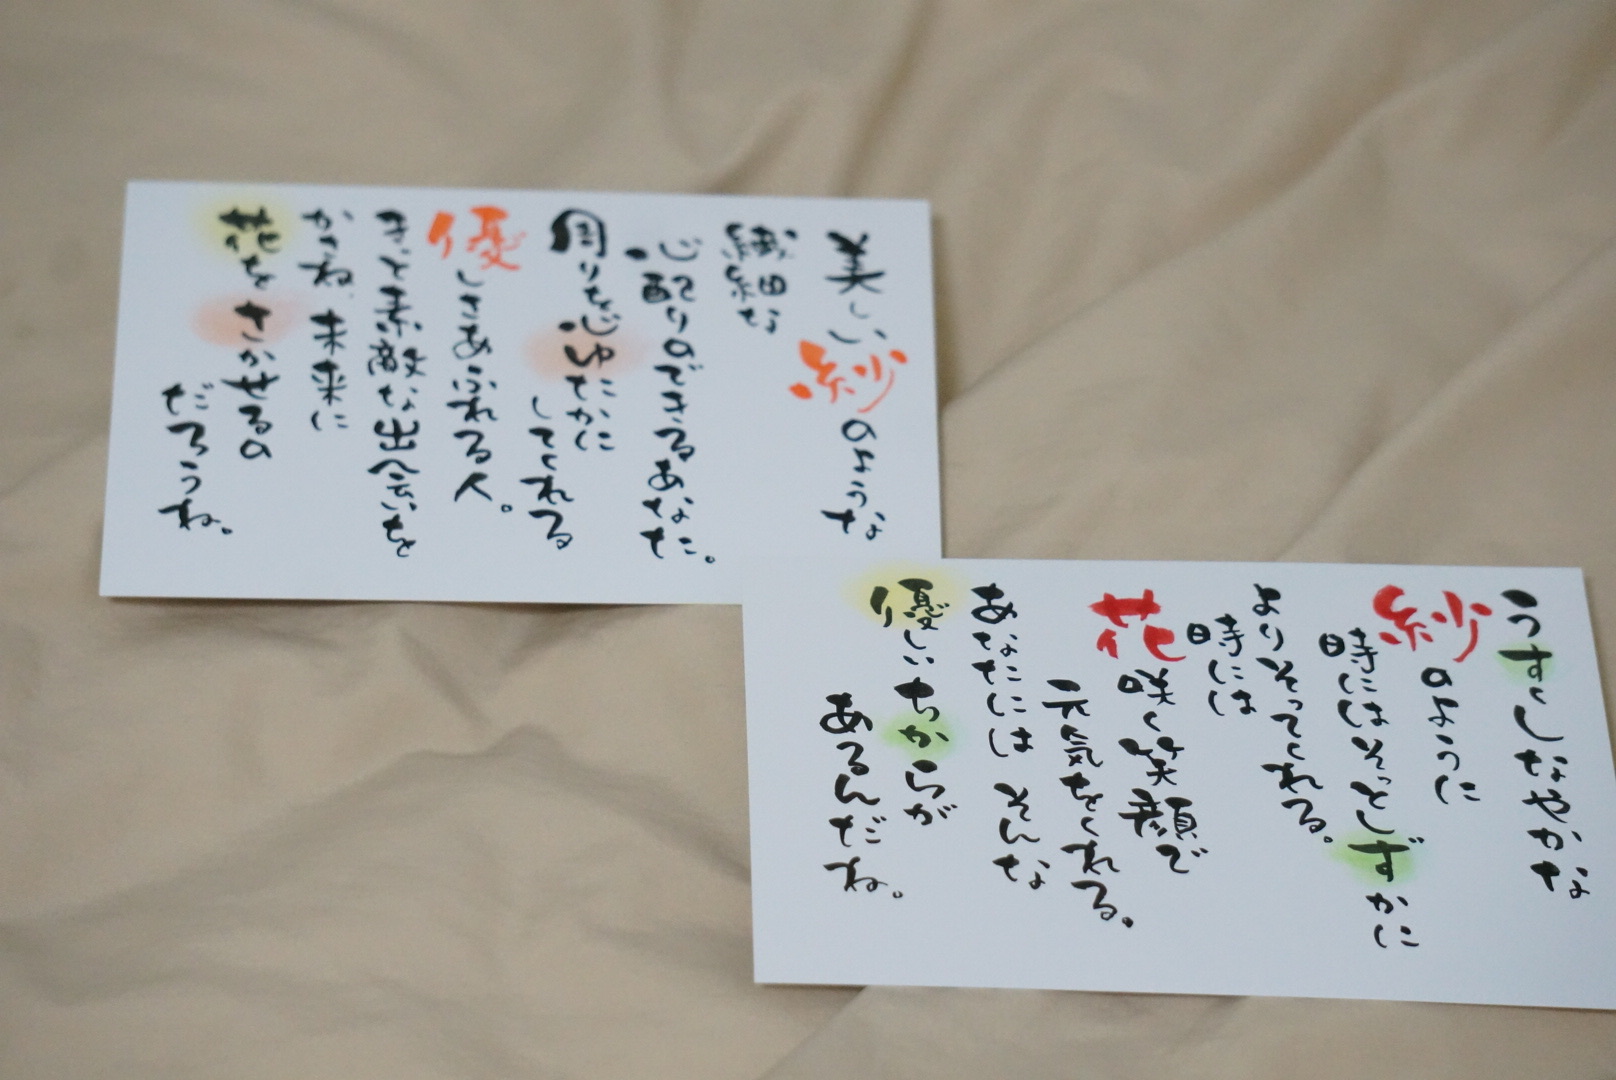 美しい紗のような
繊細な
心配りのできるあなた。
周りを心ゆたかに
してくれる
優しさあふれる人。
きっと素敵な出会いを
かさね、未来に
花をさかせるの
だろうね。
うすくしなやかな
紗のように
時にはそっとしずかに
よりそってくれる。
時には
花咲く笑顔で
元気をくれる。
あなたには そんな
優しいちからが
あるんだね。